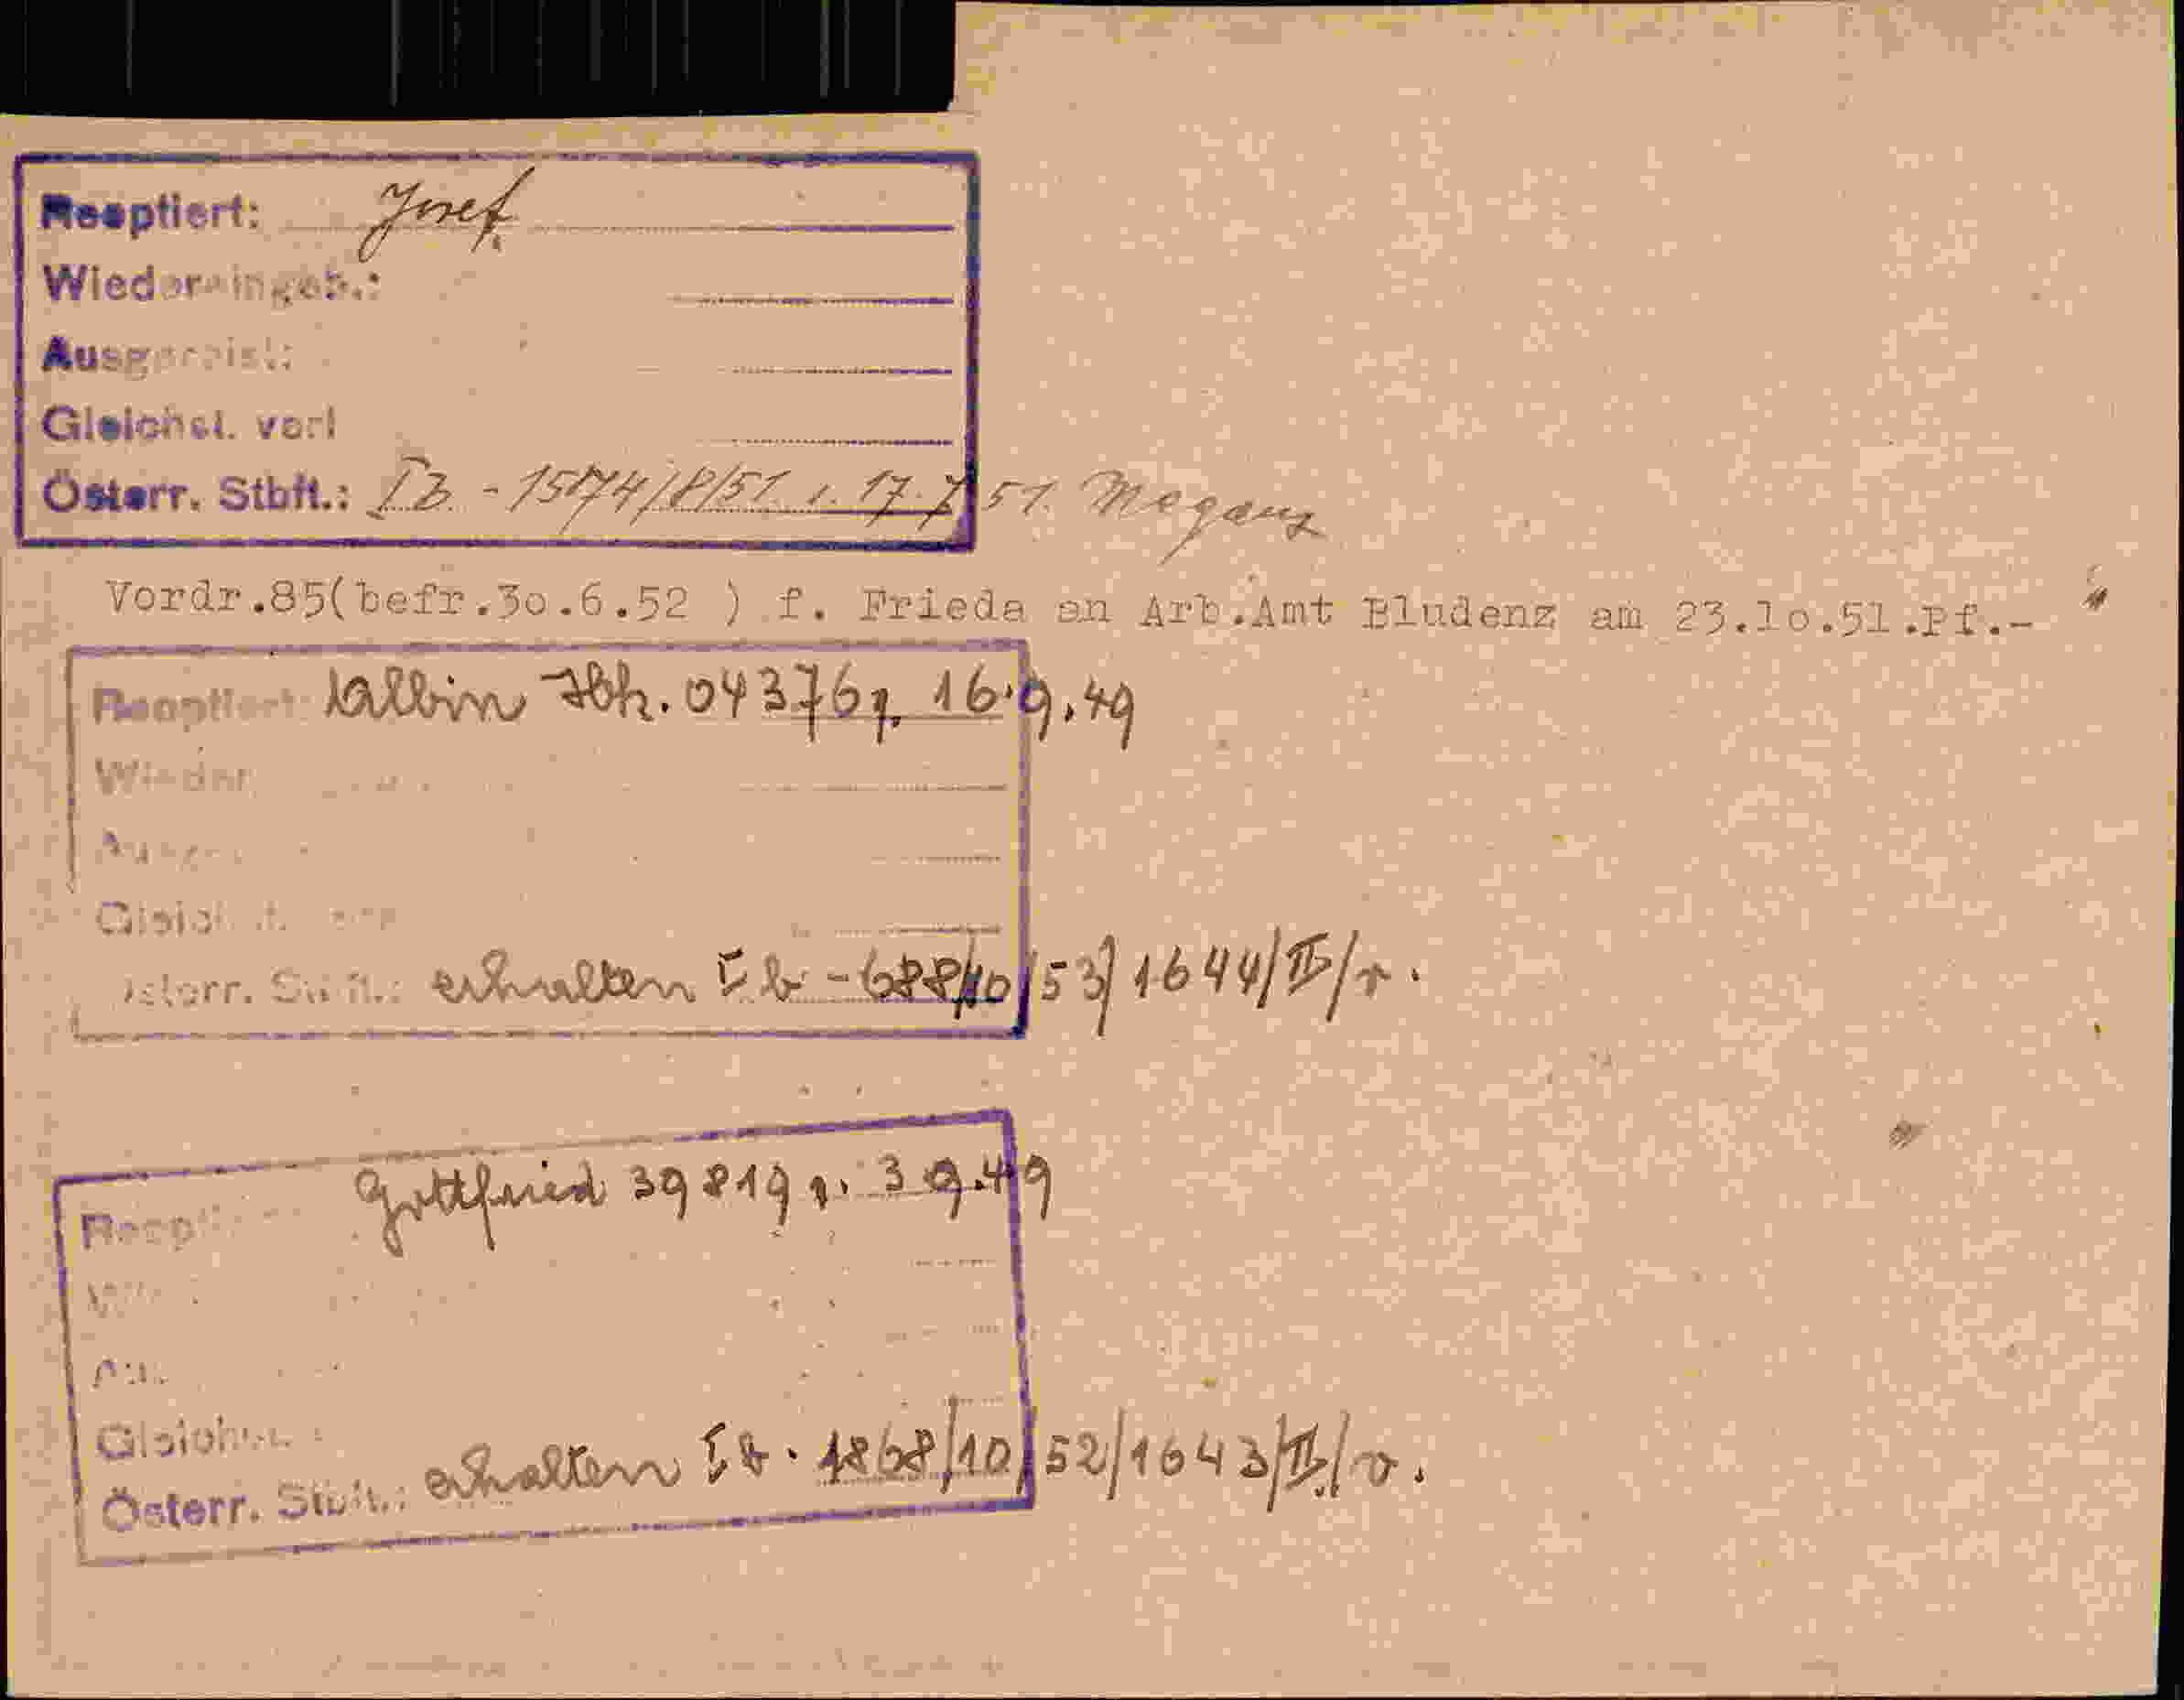 Reoptiert: Josef
Wiedereingeb.:
Ausgereist:
Gleichst. verl
Österr. Stbft.: IB. - 15174/8/51. v. 17. 7 51. Meganz
Vordr.85(befr.3o.6.52 ) f. Frieda an Arb.Amt Bludenz am 23.1o.51.Pf.-
Reoptiert: Albin Ibk. 04376 v. 16.9.49
Wieder
Ausge
Gleichst. ver
Österr. Stbft.: erhalten Ib - 688/10/53/1644/II/v.
Reoptiert Gottfried 39819 v. 3 9.49
Wi
Aus
Gleichst.
Österr. Stbft.: erhalten Ib. 1868/10/52/1643/II/v.